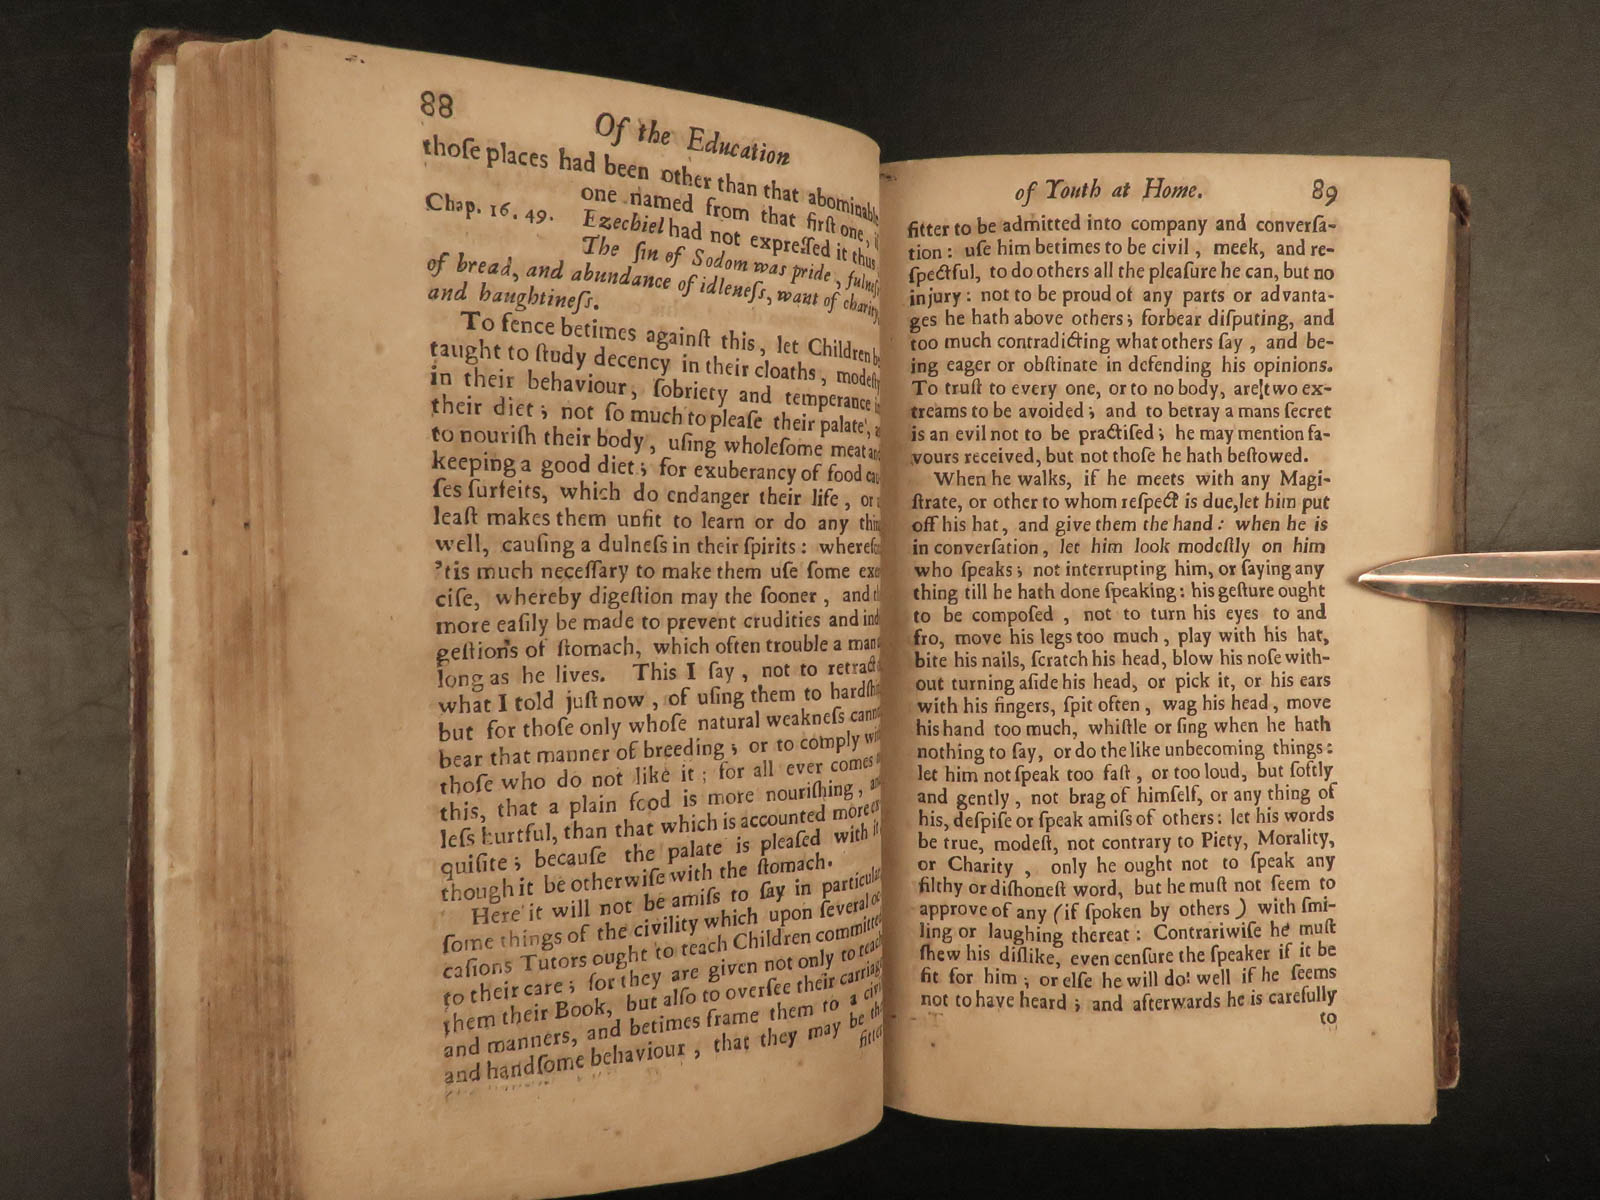 88
Of the Education
thoſe places had been other than that abominable
one named from that firſt one,
Chap. 16. 49. Ezechiel had not expreſſed it thus
The ſin of Sodom was pride, fulneſs
of bread, and abundance of idleneſs, want of charity,
and haughtineſs.
To fence betimes againſt this, let Children be
taught to ſtudy decency in their cloaths, modeſty
in their behaviour, ſobriety and temperance in
their diet; not ſo much to pleaſe their palate,
to nouriſh their body, uſing wholeſome meat and
keeping a good diet; for exuberancy of food cau-
ſes ſurfeits, which do endanger their life, or
leaſt makes them unfit to learn or do any thing
well, cauſing a dulneſs in their ſpirits: wherefore
'tis much neceſſary to make them uſe ſome exer-
ciſe, whereby digeſtion may the ſooner, and
more eaſily be made to prevent crudities and indi-
geſtions of ſtomach, which often trouble a man
long as he lives. This I ſay, not to retract
what I told juſt now, of uſing them to hardſhip
but for thoſe only whoſe natural weakneſs cannot
bear that manner of breeding; or to comply with
thoſe who do not like it; for all ever comes
this, that a plain food is more nouriſhing, and
leſs hurtful, than that which is accounted more ex-
quiſite; becauſe the palate is pleaſed with it
though it be otherwiſe with the ſtomach.
Here it will not be amiſs to ſay in particular
ſome things of the civility which upon ſeveral oc-
caſions Tutors ought to teach Children committed
to their care; for they are given not only to teach
them their Book, but alſo to overſee their carriage
and manners, and betimes frame them to a civil
and handſome behaviour, that they may be the
fitter
of Youth at Home. 89
fitter to be admitted into company and converſa-
tion: uſe him betimes to be civil, meek, and re-
ſpectful, to do others all the pleaſure he can, but no
injury: not to be proud of any parts or advanta-
ges he hath above others; forbear diſputing, and
too much contradicting what others ſay, and be-
ing eager or obſtinate in defending his opinions.
To truſt to every one, or to no body, are two ex-
treams to be avoided; and to betray a mans ſecret
is an evil not to be practiſed; he may mention fa-
vours received, but not thoſe he hath beſtowed.
When he walks, if he meets with any Magi-
ſtrate, or other to whom reſpect is due, let him put
off his hat, and give them the hand: when he is
in converſation, let him look modeſtly on him
who ſpeaks; not interrupting him, or ſaying any
thing till he hath done ſpeaking: his geſture ought
to be compoſed, not to turn his eyes to and
fro, move his legs too much, play with his hat,
bite his nails, ſcratch his head, blow his noſe with-
out turning aſide his head, or pick it, or his ears
with his fingers, ſpit often, wag his head, move
his hand too much, whiſtle or ſing when he hath
nothing to ſay, or do the like unbecoming things:
let him not ſpeak too faſt, or too loud, but ſoftly
and gently, not brag of himſelf, or any thing of
his, deſpiſe or ſpeak amiſs of others: let his words
be true, modeſt, not contrary to Piety, Morality,
or Charity, only he ought not to ſpeak any
filthy or diſhoneſt word, but he muſt not ſeem to
approve of any (if ſpoken by others) with ſmi-
ling or laughing thereat: Contrariwiſe he muſt
ſhew his diſlike, even cenſure the ſpeaker if it be
fit for him; or elſe he will do well if he ſeems
not to have heard; and afterwards he is carefully
to